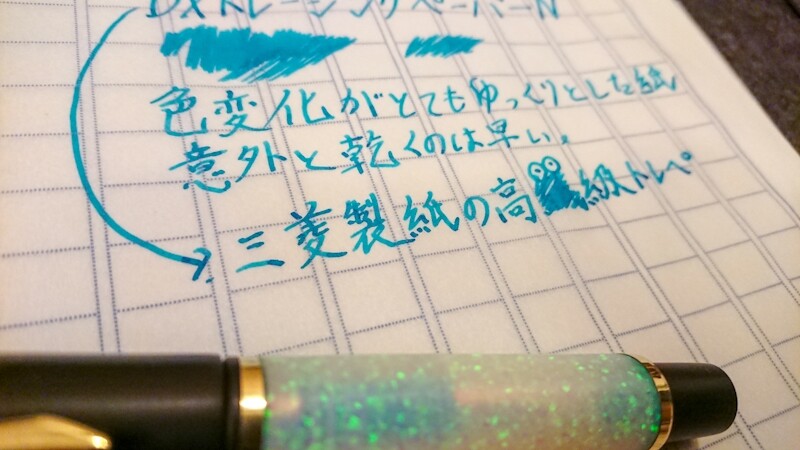 DXトレーシングペーパーN
色変化がとてもゆっくりとした紙
意外と乾くのは早い。
三菱製紙の高級トレペ